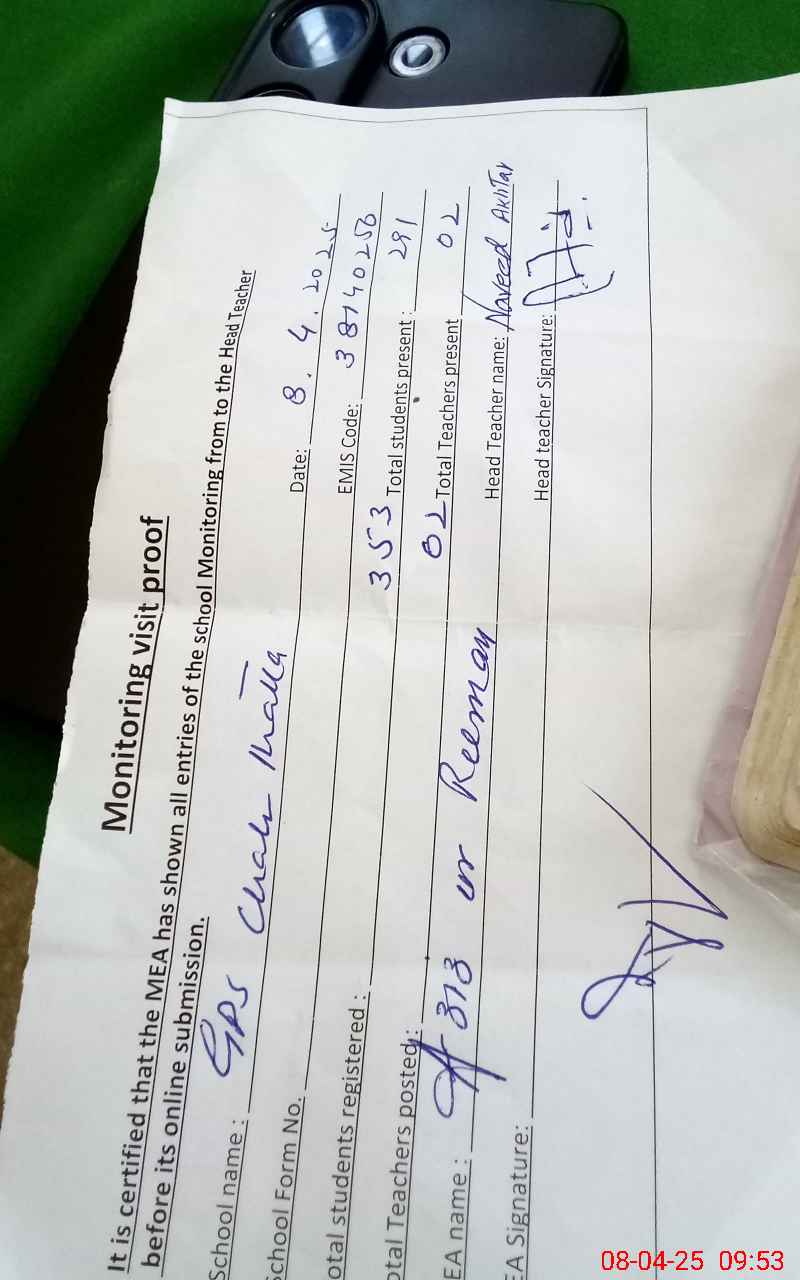 Monitoring visit proof
It is certified that the MEA has shown all entries of the school Monitoring from to the Head Teacher
before its online submission.
School name : GPS Chah Date: 8. 4. 2025
School Form No. EMIS Code: 38140256
otal students registered : 353 Total students present : 291
otal Teachers posted : 02 Total Teachers present 02
EA name : 313 Head Teacher name: Naveed Akhtar
EA Signature: Head teacher Signature:
08-04-25 09:53